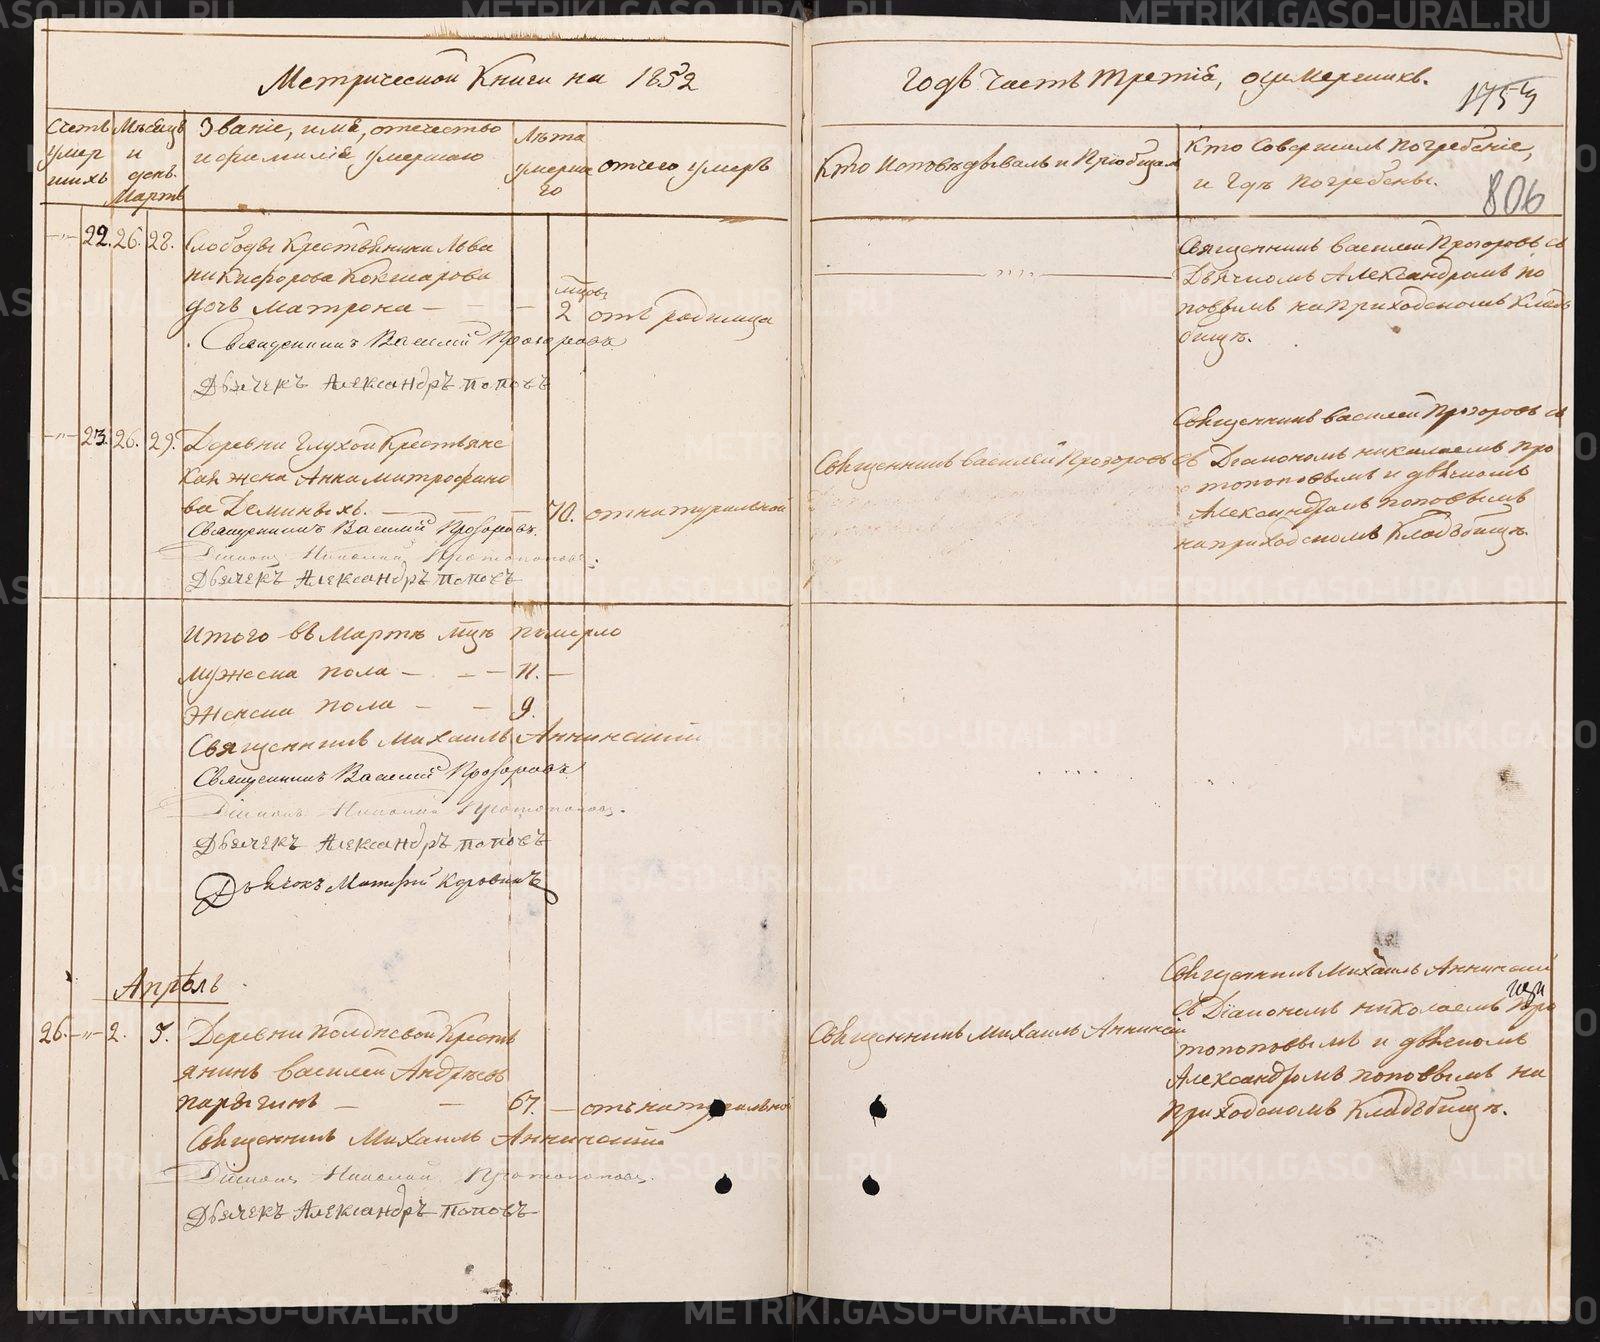 Метрической Книги на 1852
годъ Часть Третія, о умершихъ.
806
Счетъ умер шихъ
Мѣсяцъ и день.
Мартъ
Званіе, имя, отечество и фамилія умершаго
Лѣта умерша го
отчего умеръ
Кто Исповѣдывалъ и Пріобщалъ
Кто Совершалъ погребеніе, и Гдѣ погребены.
22. 26. 28. Слободы Крестьянина Льва
никифорова Кокшарова
мѣсяц
дочь Матрона — 2 отъ родимца
Священникъ Василій Прозоровъ
Дьячекъ Александръ поповъ
Священникъ василей Прозоровъ съ
Дьячкомъ Александромъ по
повымъ на приходскомъ Кладъ
бищѣ.
23. 26. 29. Деревни Глухой Крестьянс
кая жена Анна митрофано
ва Деминыхъ. — 70. отнатуральной
Священникъ Василій Прозоровъ.
Діаконъ Николай Протопоповъ.
Дьячекъ Александръ поповъ
Священникъ василей Прозоровъ
Священникъ василей Прозоровъ съ
съ Діакономъ николаемъ про
топоповымъ и дьячкомъ
Александромъ поповымъ
на приходскомъ Кладъбищѣ.
Итого въ Мартѣ мцѣ померло
мужеска пола — 11. —
Женска пола — 9.
Священникъ Михаилъ Аннинскій
Священникъ Василій Прозоровъ
Діаконъ Николай Протопоповъ.
Дьячекъ Александръ поповъ
Дьячокъ Матфій Коровинъ
Апрѣль
26. 2. 5. Деревни полдневой Кресть
янинъ василей Андреевъ
парыгинъ — 67. — отъ натуральной
Священникъ Михаилъ Аннинскій
Діаконъ Николай Протопоповъ.
Дьячекъ Александръ поповъ
Священникъ Михаилъ Аннинскій
Священникъ Михаилъ Аннинскій
съ Діакономъ николаемъ про
топоповымъ и дьячкомъ
Александромъ поповымъ на
приходскомъ Кладъбищѣ.
METRIKI.GASO-URAL.RU